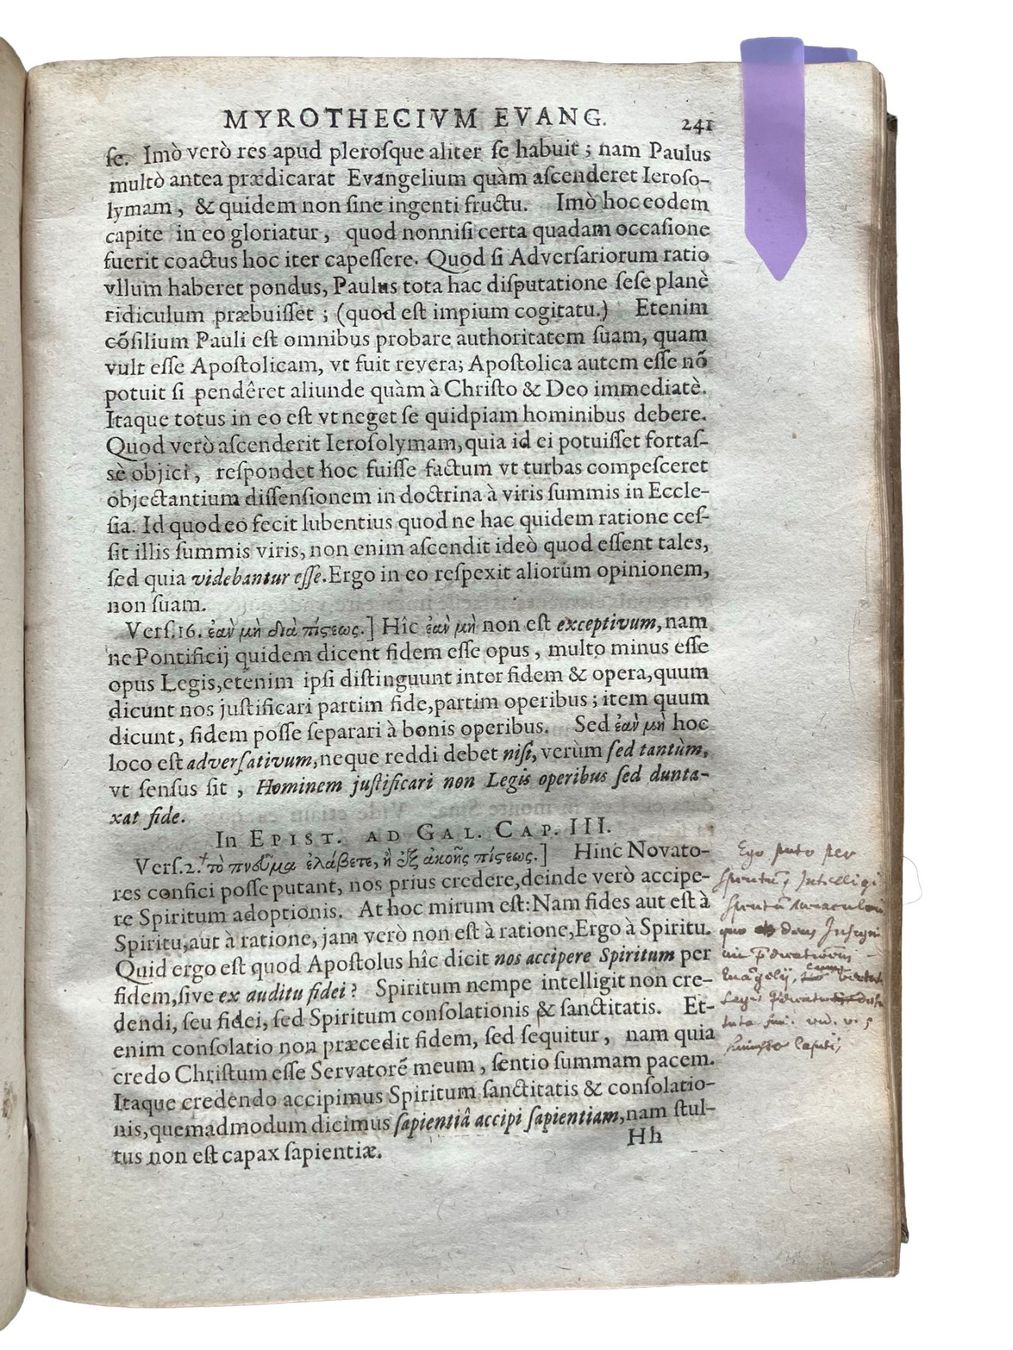 MYROTHECIVM EVANG. 241
ſe. Imò verò res apud pleroſque aliter ſe habuit ; nam Paulus
multò antea prædicarat Evangelium quàm aſcenderet Ieroſo-
lymam, & quidem non ſine ingenti fructu. Imò hoc eodem
capite in eo gloriatur, quod nonniſi certa quadam occaſione
fuerit coactus hoc iter capeſſere. Quod ſi Adverſariorum ratio
vllum haberet pondus, Paulus tota hac diſputatione ſeſe planè
ridiculum præbuiſſet ; (quod eſt impium cogitatu.) Etenim
cõſilium Pauli eſt omnibus probare authoritatem ſuam, quam
vult eſſe Apoſtolicam, vt fuit revera; Apoſtolica autem eſſe nõ
potuit ſi pendêret aliunde quàm à Chriſto & Deo immediatè.
Itaque totus in eo eſt vt neget ſe quidpiam hominibus debere.
Quod verò aſcenderit Ieroſolymam, quia id ei potuiſſet fortaſ-
sè objici, reſpondet hoc fuiſſe factum vt turbas compeſceret
objectantium diſſenſionem in doctrina à viris ſummis in Eccle-
ſia. Id quod eo fecit lubentius quod ne hac quidem ratione ceſ-
ſit illis ſummis viris, non enim aſcendit ideò quod eſſent tales,
ſed quia videbantur eſſe. Ergo in eo reſpexit aliorùm opinionem,
non ſuam.
Verſ.16. ἐαν μὴ διὰ πίςεως.] Hîc ἐαν μὴ non eſt exceptivum, nam
ne Pontificij quidem dicent fidem eſſe opus, multo minus eſſe
opus Legis, etenim ipſi diſtinguunt inter fidem & opera, quum
dicunt nos juſtificari partim fide, partim operibus ; item quum
dicunt, fidem poſſe ſeparari à bonis operibus. Sed ἐαν μὴ hoc
loco eſt adverſativum, neque reddi debet niſi, verùm ſed tantùm,
vt ſenſus ſit, Hominem juſtificari non Legis operibus ſed dunta-
xat fide.
In EPIST. AD GAL. CAP. III.
Verſ.2. τὸ πνεῦμα ἐλάβετε, ἢ ἐξ ἀκοῆς πίςεως.] Hinc Novato-
res confici poſſe putant, nos prius credere, deinde verò accipe-
re Spiritum adoptionis. At hoc mirum eſt: Nam fides aut eſt à
Spiritu, aut à ratione, jam verò non eſt à ratione, Ergo à Spiritu.
Quid ergo eſt quod Apoſtolus hîc dicit nos accipere Spiritum per
fidem, ſive ex auditu fidei ? Spiritum nempe intelligit non cre-
dendi, ſeu fidei, ſed Spiritum conſolationis & ſanctitatis. Et-
enim conſolatio non præcedit fidem, ſed ſequitur, nam quia
credo Chriſtum eſſe Servatorẽ meum, ſentio ſummam pacem.
Itaque credendo accipimus Spiritum ſanctitatis & conſolatio-
nis, quemadmodum dicimus ſapientiâ accipi ſapientiam, nam ſtul-
tus non eſt capax ſapientiæ.
Hh
Ego puto per